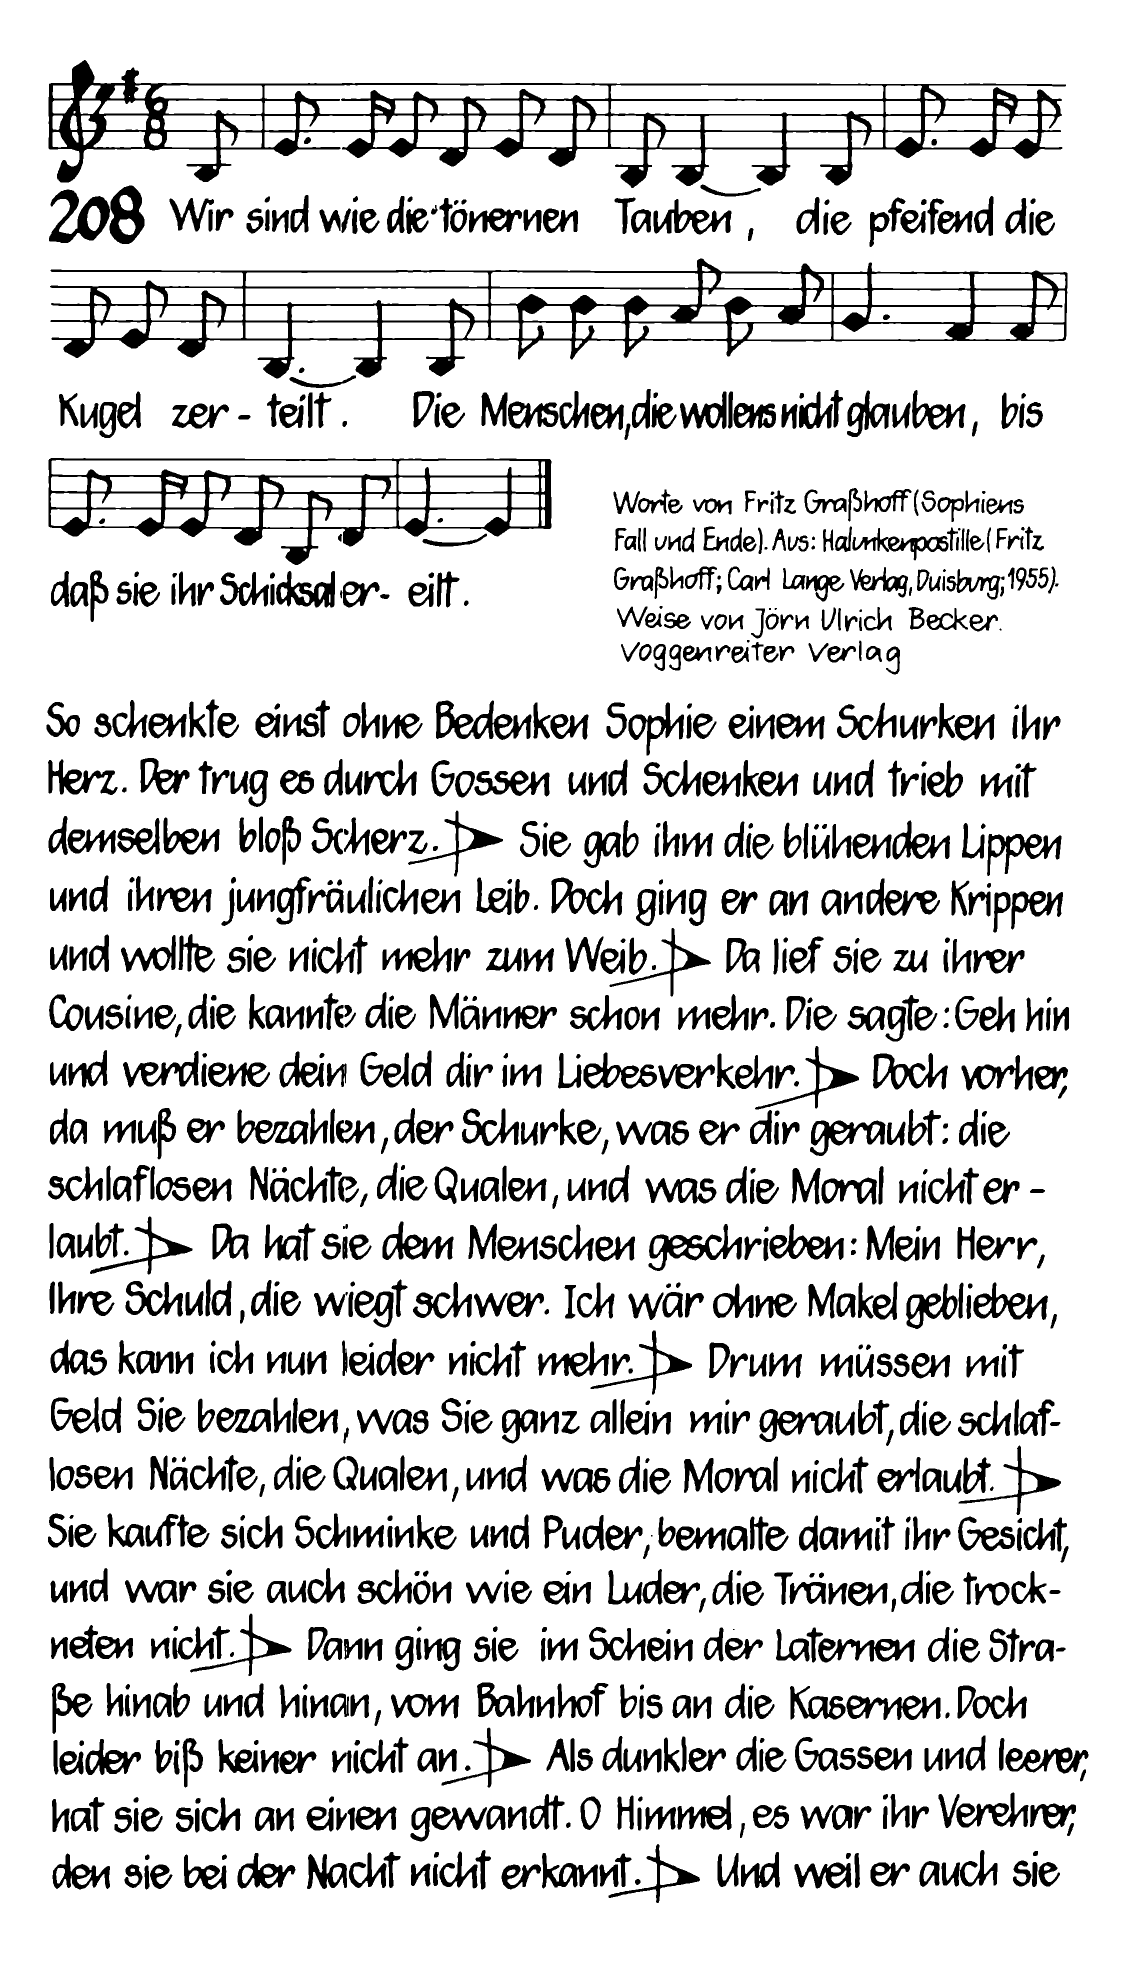 208 Wir sind wie die tönernen Tauben, die pfeifend die
Kugel zer- teilt. Die Menschen, die wollens nicht glauben, bis
daß sie ihr Schicksal er- eilt.
Worte von Fritz Graßhoff (Sophiens
Fall und Ende). Aus: Halunkenpostille (Fritz
Graßhoff; Carl Lange Verlag, Duisburg; 1955).
Weise von Jörn Ulrich Becker.
Voggenreiter Verlag
So schenkte einst ohne Bedenken Sophie einem Schurken ihr
Herz. Der trug es durch Gossen und Schenken und trieb mit
demselben bloß Scherz. Sie gab ihm die blühenden Lippen
und ihren jungfräulichen Leib. Doch ging er an andere Krippen
und wollte sie nicht mehr zum Weib. Da lief sie zu ihrer
Cousine, die kannte die Männer schon mehr. Die sagte: Geh hin
und verdiene dein Geld dir im Liebesverkehr. Doch vorher,
da muß er bezahlen, der Schurke, was er dir geraubt: die
schlaflosen Nächte, die Qualen, und was die Moral nicht er-
laubt. Da hat sie dem Menschen geschrieben: Mein Herr,
Ihre Schuld, die wiegt schwer. Ich wär ohne Makel geblieben,
das kann ich nun leider nicht mehr. Drum müssen mit
Geld Sie bezahlen, was Sie ganz allein mir geraubt, die schlaf-
losen Nächte, die Qualen, und was die Moral nicht erlaubt.
Sie kaufte sich Schminke und Puder, bemalte damit ihr Gesicht,
und war sie auch schön wie ein Luder, die Tränen, die trock-
neten nicht. Dann ging sie im Schein der Laternen die Stra-
ße hinab und hinan, vom Bahnhof bis an die Kasernen. Doch
leider biß keiner nicht an. Als dunkler die Gassen und leerer,
hat sie sich an einen gewandt. O Himmel, es war ihr Verehrer,
den sie bei der Nacht nicht erkannt. Und weil er auch sie